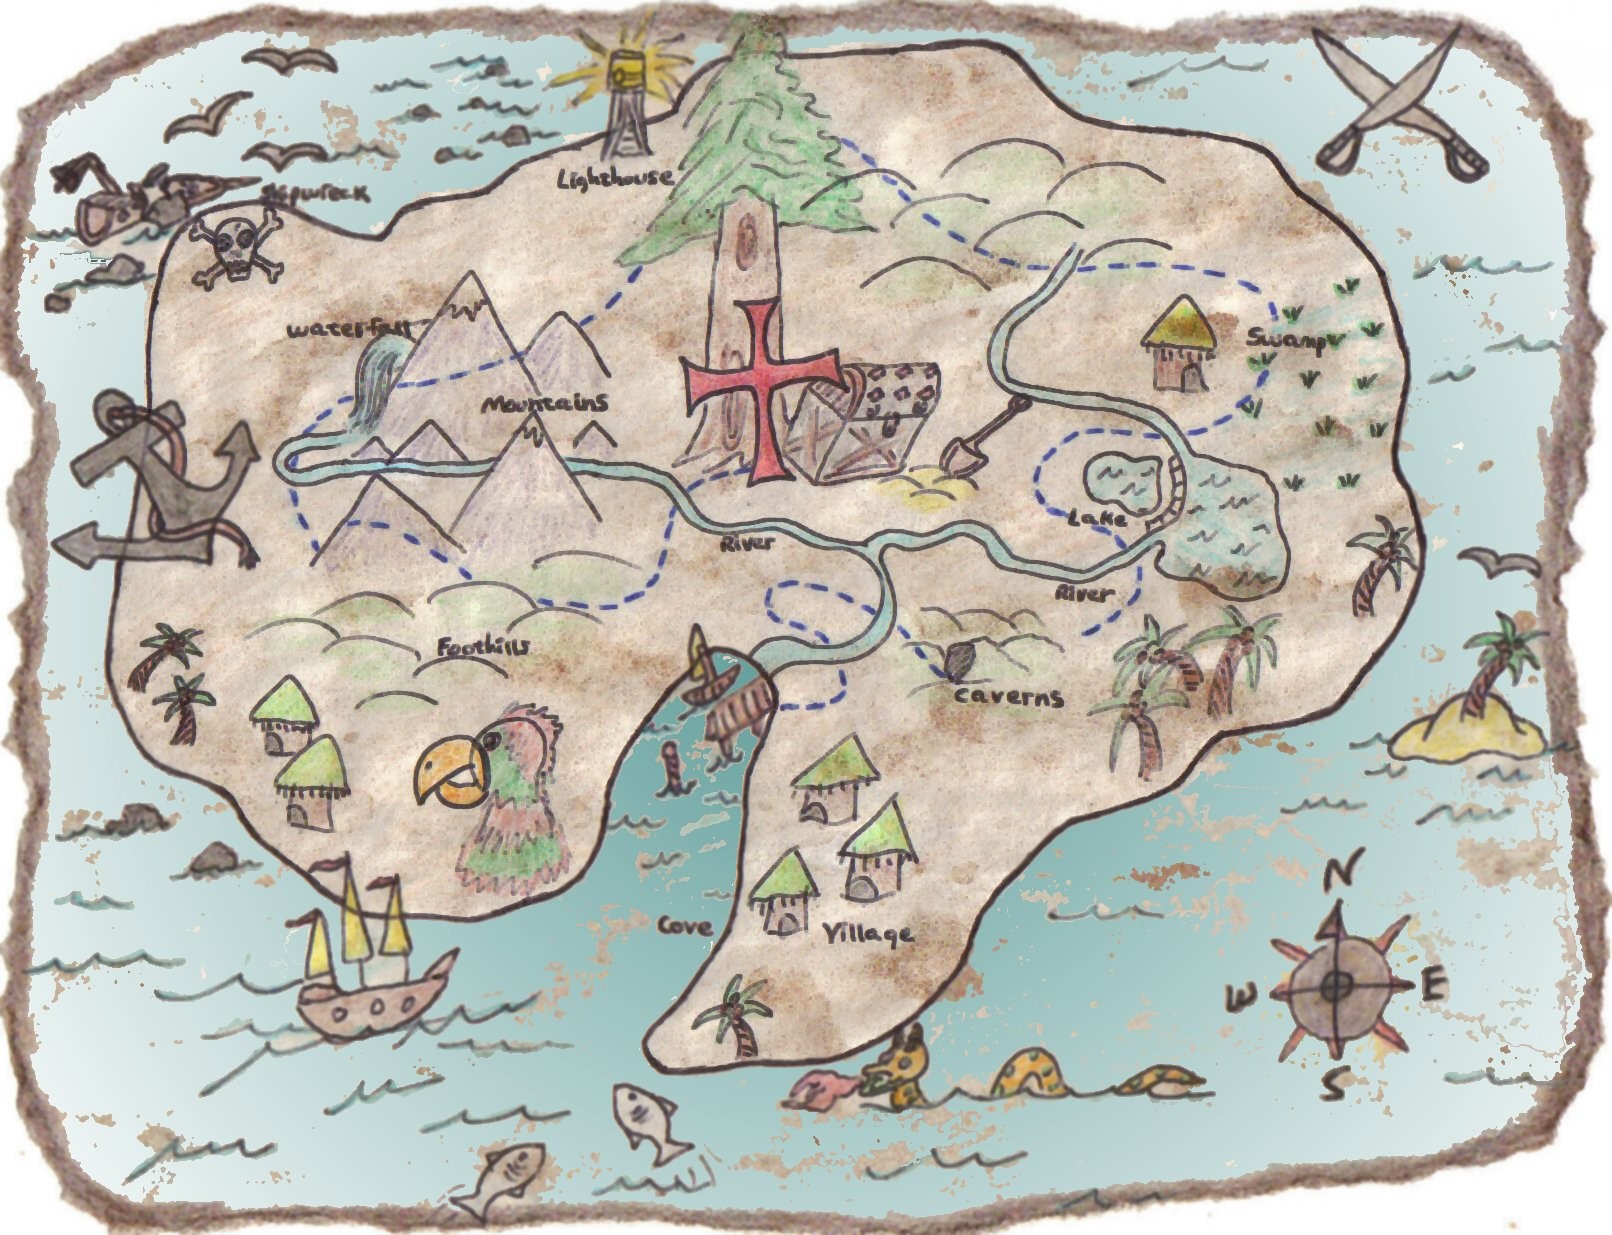 shipwreck
Lighthouse
waterfall
Mountains
Swamp
Lake
River
River
Foothills
caverns
Cove
Village
N
W
E
S